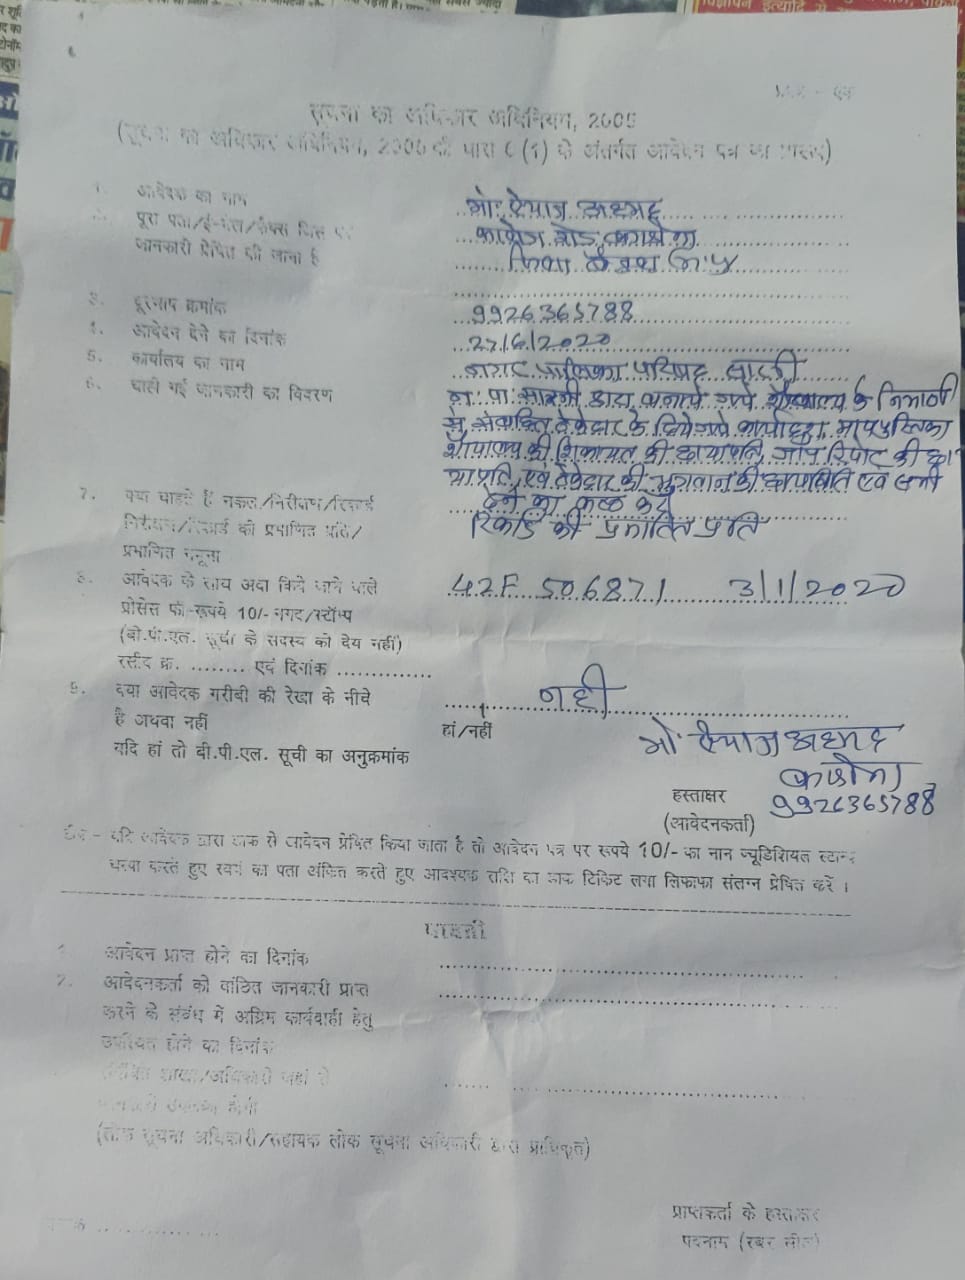 सूचना का अधिकार अधिनियम, 2005
(सूचना का अधिकार अधिनियम, 2005 की धारा 6 (1) के अंतर्गत आवेदन पत्र का प्रारूप)
1. आवेदक का नाम
मो. ऐयाज अहमद
पूरा पता/ई-मेल/फैक्स जिस पर
कालेज रोड
जानकारी प्रेषित की जाना है
जिला म.प्र
3. दूरभाष क्रमांक
9926365788
4. आवेदन देने का दिनांक
27/6/2020
5. कार्यालय का नाम
नगर पालिका परिषद सारनी
6. चाही गई जानकारी का विवरण
न.पा. सारनी द्वारा बनाये गये शौचालय के निर्माण
से संबंधित ठेकेदार के दिये गये कार्यादेश, मापपुस्तिका
शौचालय की शिकायत की छायाप्रति, जांच रिपोर्ट की छा-
याप्रति एवं ठेकेदार की भुगतान की एवं सभी
देने का कष्ट करे
7. क्या चाहते हैं नकल/निरीक्षण/रिकार्ड
निरीक्षण/रिकार्ड की प्रमाणित प्रति/
रिकार्ड की प्रमाणित प्रति
प्रमाणित नमूना
8. आवेदक के साथ अदा किये जाने वाले
42F 506871 3/1/2020
प्रोसेस फी-रूपये 10/- नगद/स्टॉम्प
(बी.पी.एल. सूची के सदस्य को देय नहीं)
रसीद क्र. ........ एवं दिनांक ..............
9. क्या आवेदक गरीबी की रेखा के नीचे
नही
है अथवा नहीं
हां/नहीं
यदि हां तो बी.पी.एल. सूची का अनुक्रमांक
मो. ऐयाज अहमद
हस्ताक्षर
9926365788
(आवेदनकर्ता)
यदि आवेदक द्वारा डाक से आवेदन प्रेषित किया जाता है तो आवेदन पत्र पर रूपये 10/- का नान ज्यूडिशियल स्टाम्प
चस्पा करते हुए स्वयं का पता अंकित करते हुए आवश्यक राशि का डाक टिकिट लगा लिफाफा संलग्न प्रेषित करें ।
पावती
1. आवेदन प्राप्त होने का दिनांक
2. आवेदनकर्ता को वांछित जानकारी प्राप्त
करने के संबंध में अग्रिम कार्यवाही हेतु
उपस्थित होने का दिनांक
संबंधित शाखा/अधिकारी जहां से
जानकारी उपलब्ध होगी
(लोक सूचना अधिकारी/सहायक लोक सूचना अधिकारी द्वारा प्राधिकृत)
प्राप्तकर्ता के हस्ताक्षर
पदनाम (रबर सील)